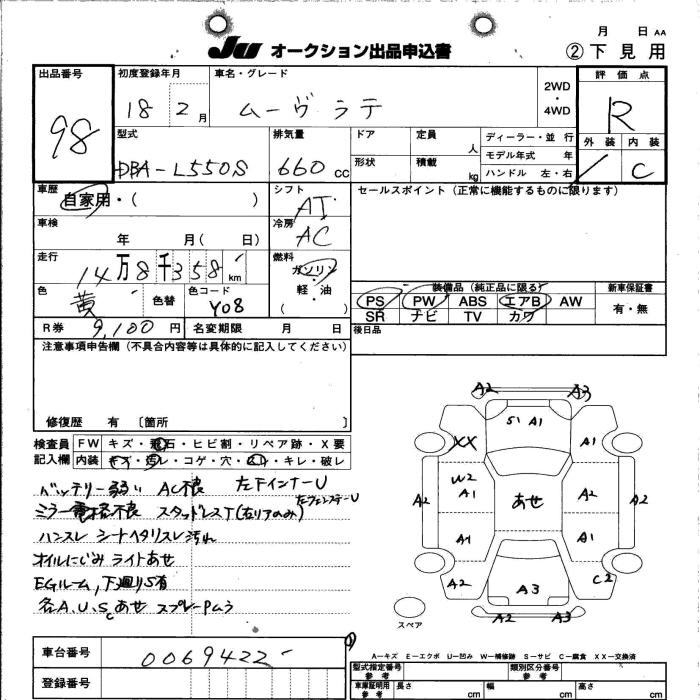 JU オークション出品申込書
月 日 AA
② 下 見 用
出品番号 98
初度登録年月 18 2 月
車名・グレード ムーヴ ラテ
2WD ・ 4WD
評 価 点 R
外 装 内 装
C
型式 DBA-L550S
排気量 660 CC
ドア 定員 人
形状 積載 kg
ディーラー・並 行
モデル年式 年
ハンドル 左・右
車歴 自家用・( )
シフト AT
セールスポイント(正常に機能するものに限ります)
車検 年 月( 日)
冷房 AC
走行 14万8千358 km
燃料 ガソリン ・ 軽 ・ 油 ( )
色 黄 色替
色コード Y08
R券 9,100 円
名変期限 月 日
装備品(純正品に限る)
新車保証書
PS PW ABS エアB AW
有・無
SR ナビ TV カワ
後日品
注意事項申告欄(不具合内容等は具体的に記入してください)
修復歴 有 〔箇所 〕
検査員 FW キズ・飛石・ヒビ割・リペア跡・X要
記入欄 内装 キズ・汚レ・コゲ・穴・ ・キレ・破レ
バッテリー弱い AC不良 左下インナーU
ミラー電格不良 スタッドレスT(右リアのみ) 左フェンダーU
ハンスレ シートヘタリスレ汚れ
オイルにじみ ライトあせ
EGルーム,下廻りS有
各A.U.Sあせ スプレーPムラ
A2 A3
S1 A1
XX A1
W2 A1 あせ A2
A2 A2
A1 A1
A2 A3 C2
A2 A2
スペア
A-キズ E-エクボ U-凹み W-補修跡 S-サビ C-腐食 XX-交換済
車台番号 0069422
登録番号
型式指定番号 参考
類別区分番号 参考
車庫証明用 参考 長さ cm 幅 cm 高さ cm